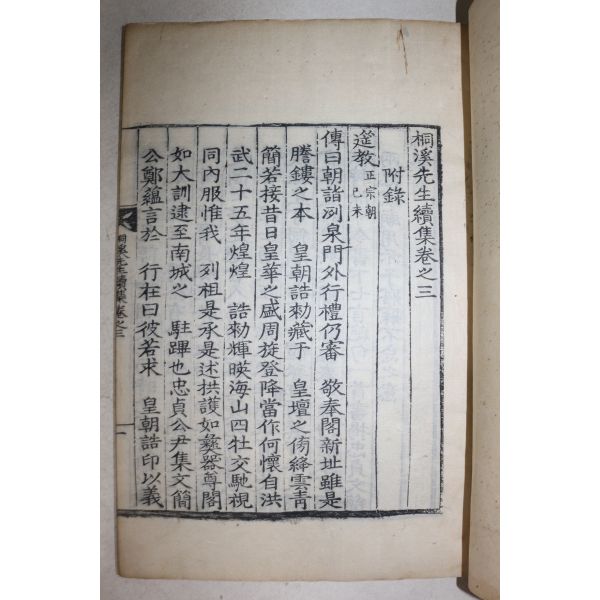 桐溪先生續集卷之三
附錄
筵教 正宗朝 己未
傳曰朝詣冽泉門外行禮仍審 敬奉閣新址雖是
謄鏤之本 皇朝誥勅藏于 皇壇之傍絳雲靑
簡若接昔日皇華之盛周旋登降當作何懷自洪
武二十五年煌煌 誥勅輝暎海山四牡交馳視
同內服惟我 列祖是承是述拱護如彝器尊閣
如大訓逮至南城之 駐蹕也忠貞公尹集文簡
公鄭蘊言於 行在曰彼若求 皇朝誥印以義
桐溪先生續集卷之三
一